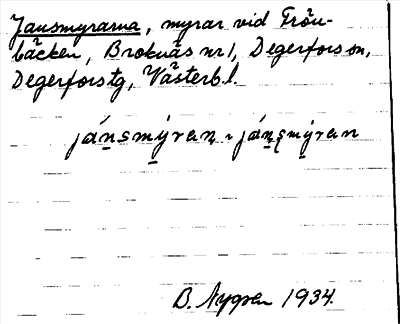 Jansmyrarna, myrar vid Trön-
bäcken, Broknäs nr 1, Degerfors sn,
Degerfors tg, Västerb. l.
jánsmýran, jánsmýran
B. Nygren 1934.